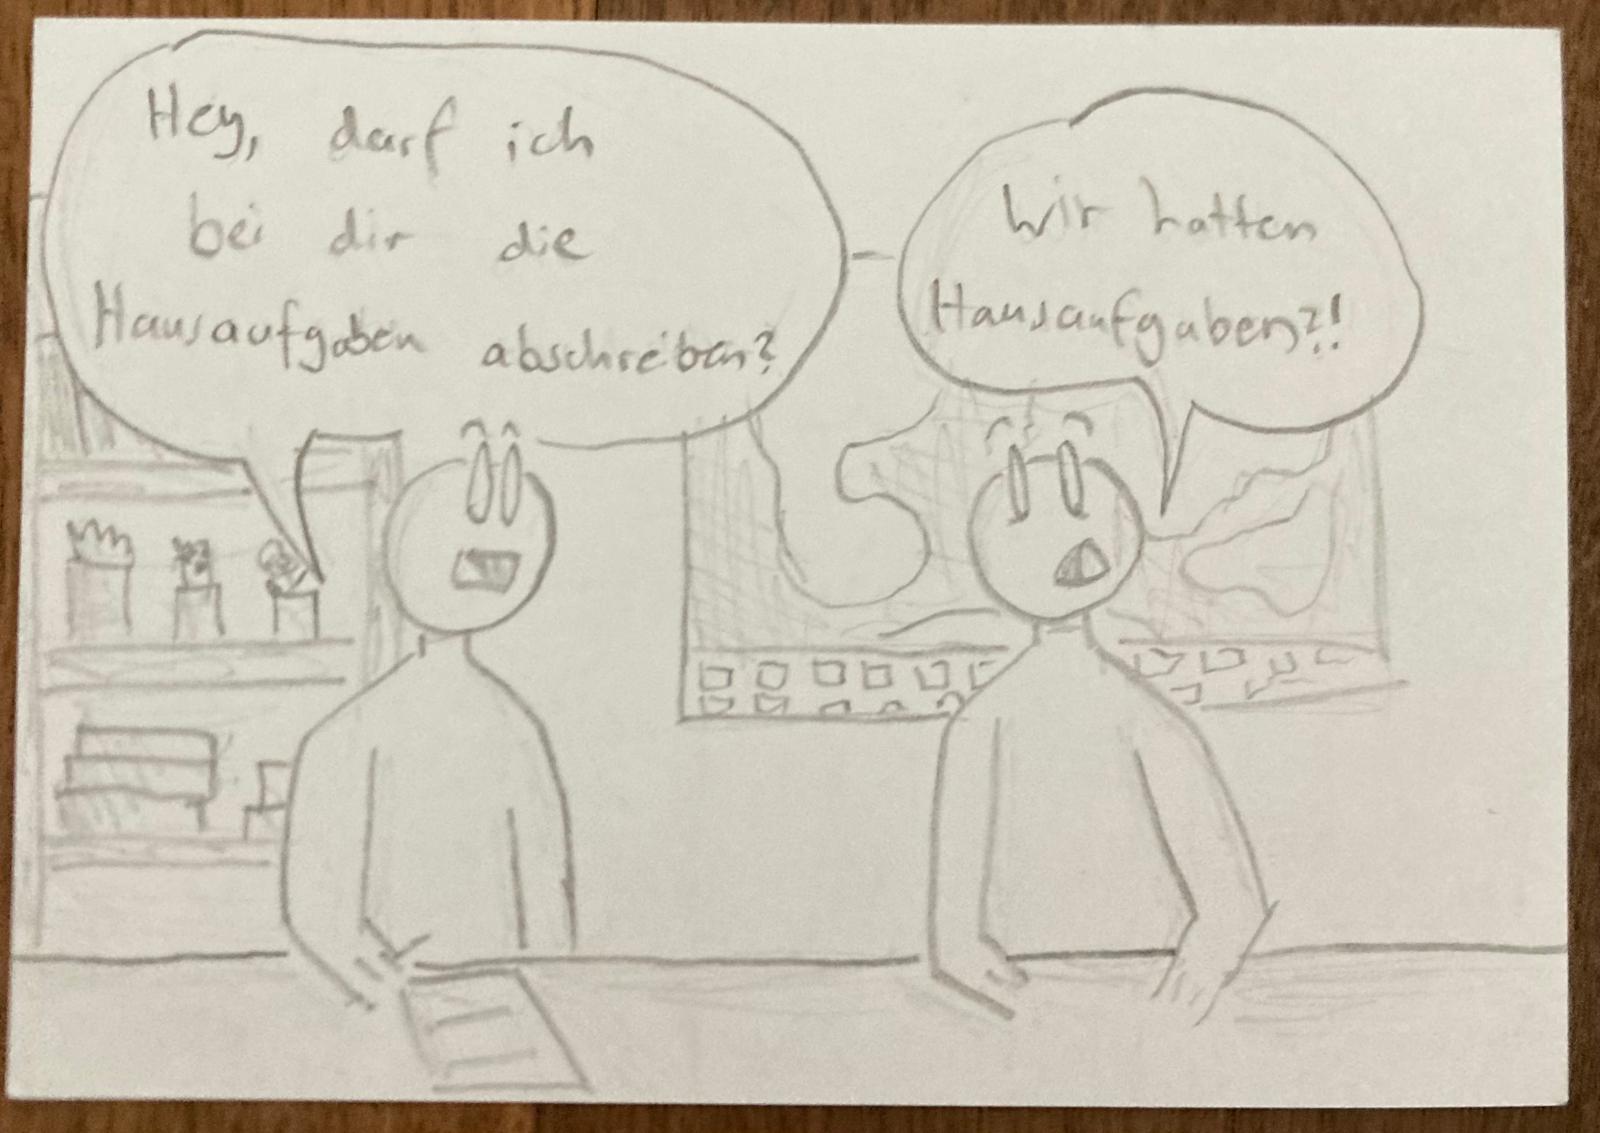 Hey, darf ich
bei dir die
Hausaufgaben abschreiben?
Wir hatten
Hausaufgaben?!